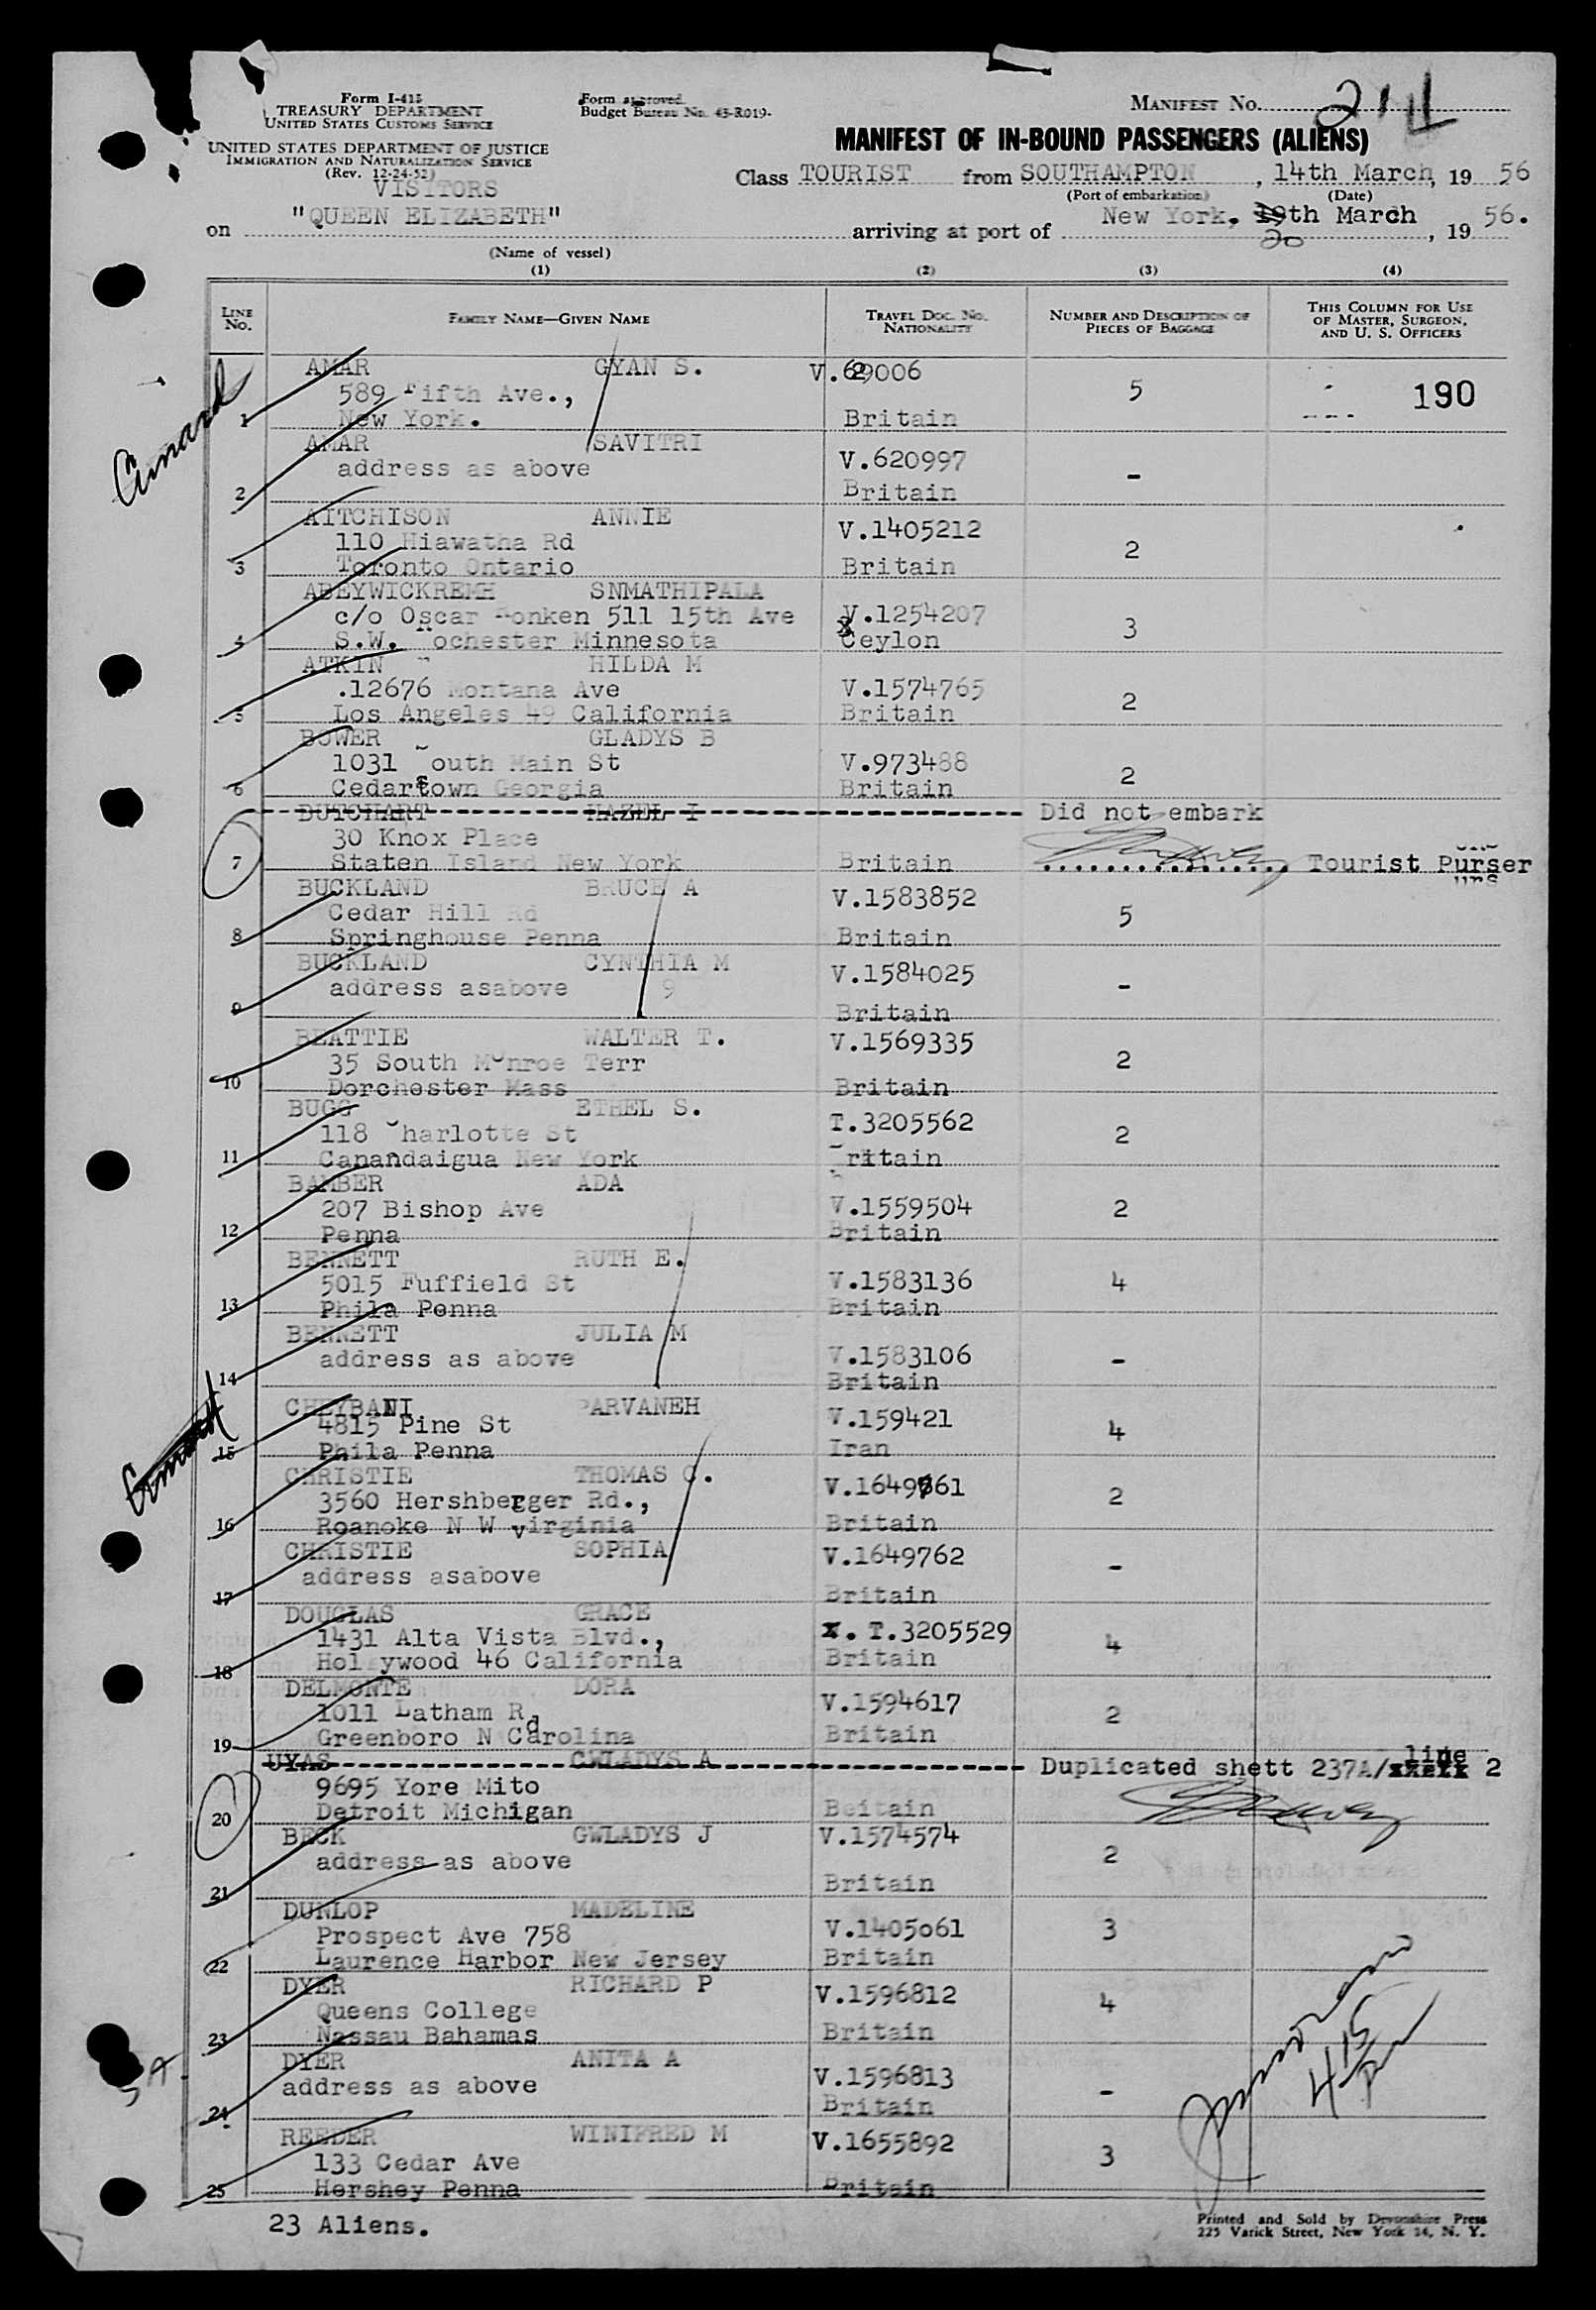 Form I-415
TREASURY DEPARTMENT
UNITED STATES CUSTOMS SERVICE
UNITED STATES DEPARTMENT OF JUSTICE
IMMIGRATION AND NATURALIZATION SERVICE
(Rev. 12-24-52)
VISITORS
Form approved.
Budget Bureau No. 43-R019-
MANIFEST No.
MANIFEST OF IN-BOUND PASSENGERS (ALIENS)
Class TOURIST from SOUTHAMPTON, 14th March, 19 56
(Port of embarkation) (Date)
on "QUEEN ELIZABETH" arriving at port of New York, 19th March, 19 56.
20
(Name of vessel)
(1) (2) (3) (4)
LINE No. FAMILY NAME—GIVEN NAME TRAVEL DOC. No. NATIONALITY NUMBER AND DESCRIPTION OF PIECES OF BAGGAGE THIS COLUMN FOR USE OF MASTER, SURGEON, AND U. S. OFFICERS
Cunard
AMAR GYAN S. V.629006
589 Fifth Ave., 5 190
1 New York. Britain
AMAR SAVITRI V.620997
address as above -
2 Britain
AITCHISON ANNIE V.1405212
110 Hiawatha Rd 2
3 Toronto Ontario Britain
ABEYWICKREMH SNMATHIPALA
c/o Oscar Ronken 511 15th Ave V.1254207 3
4 S.W. Rochester Minnesota Ceylon
ATKIN HILDA M
.12676 Montana Ave V.1574765 2
5 Los Angeles 49 California Britain
BOWER GLADYS B
1031 South Main St V.973488 2
6 Cedartown Georgia Britain
BUTCHART HAZEL I Did not embark
30 Knox Place
7 Staten Island New York Britain Tourist Purser
BUCKLAND BRUCE A V.1583852
Cedar Hill Rd 5
8 Springhouse Penna Britain
BUCKLAND CYNTHIA M V.1584025
address asabove 9 -
9 Britain
BEATTIE WALTER T. V.1569335
35 South Monroe Terr 2
10 Dorchester Mass Britain
BUGG ETHEL S. T.3205562
118 Charlotte St 2
11 Canandaigua New York Britain
BAMBER ADA
207 Bishop Ave V.1559504 2
12 Penna Britain
BENNETT RUTH E.
5015 Fuffield St V.1583136 4
13 Phila Penna Britain
BENNETT JULIA M
address as above V.1583106 -
14 Britain
CHEYBANI PARVANEH V.159421
4815 Pine St 4
15 Phila Penna Iran
Cunard
CHRISTIE THOMAS C. V.1649761
3560 Hershberger Rd., 2
16 Roanoke N W Virginia Britain
CHRISTIE SOPHIA V.1649762
address asabove -
17 Britain
DOUGLAS GRACE
1431 Alta Vista Blvd., T.3205529 4
18 Hol ywood 46 California Britain
DELMONTE DORA
1011 Latham Rd V.1594617 2
19 Greenboro N Carolina Britain
UYAS GWLADYS A Duplicated shett 237A/line 2
9695 Yore Mito
20 Detroit Michigan Beitain
BECK GWLADYS J V.1574574
address as above 2
21 Britain
DUNLOP MADELINE
Prospect Ave 758 V.1405061 3
22 Laurence Harbor New Jersey Britain
DYER RICHARD P V.1596812
Queens College 4
23 Nassau Bahamas Britain
DYER ANITA A
address as above V.1596813 -
24 Britain
REEDER WINIFRED M V.1655892
133 Cedar Ave 3
25 Hershey Penna Britain
23 Aliens.
Printed and Sold by Devonshire Press
225 Varick Street, New York 14, N. Y.